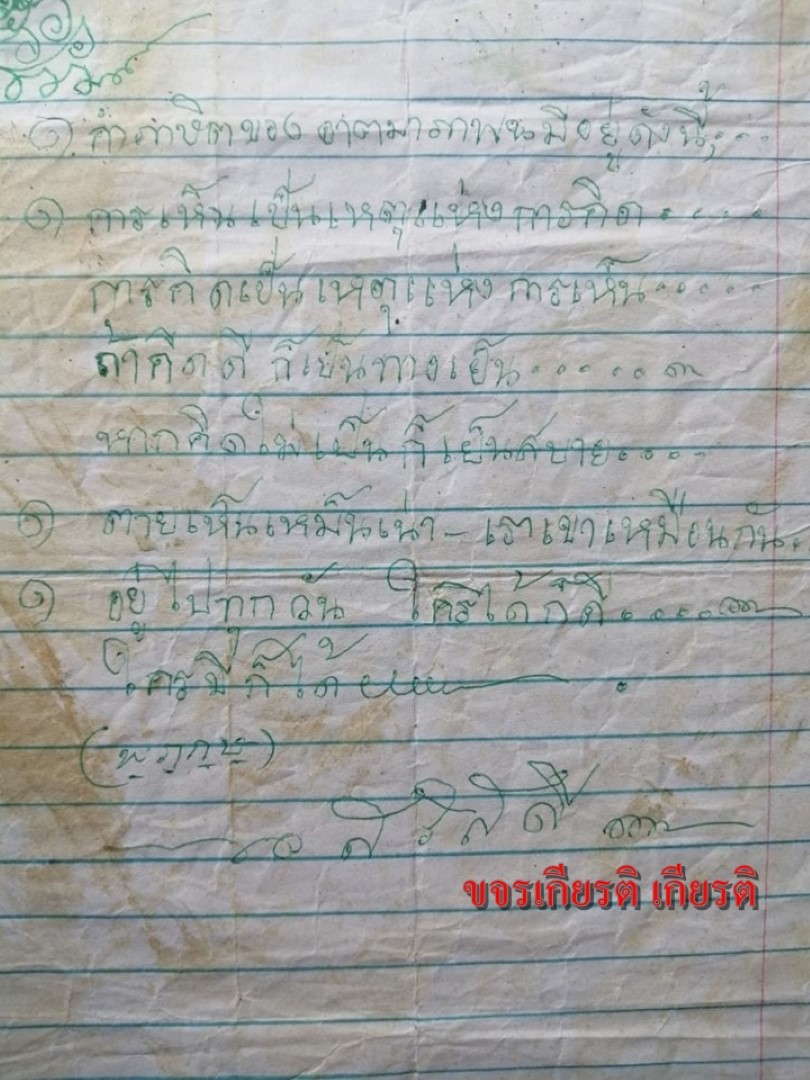 ๑ คำภาษิตของ อาตมาภาพนมีอยู่ดังนี้,....
๑ การเห็นเป็นเหตุแห่งการคิด.....
การคิดเป็นเหตุแห่งการเห็น.....
ถ้าคิดดี ก็เป็นทางเย็น.......
หากคิดไม่เป็น ก็เย็นสบาย....
๑ ตายเห็นเหม็นเน่า - เราเขาเหมือนกัน.
๑ อยู่ไปทุกวัน ใครได้ก็ดี.....
ใครมีก็ได้ .
ขจรเกียรติ เกียรติ